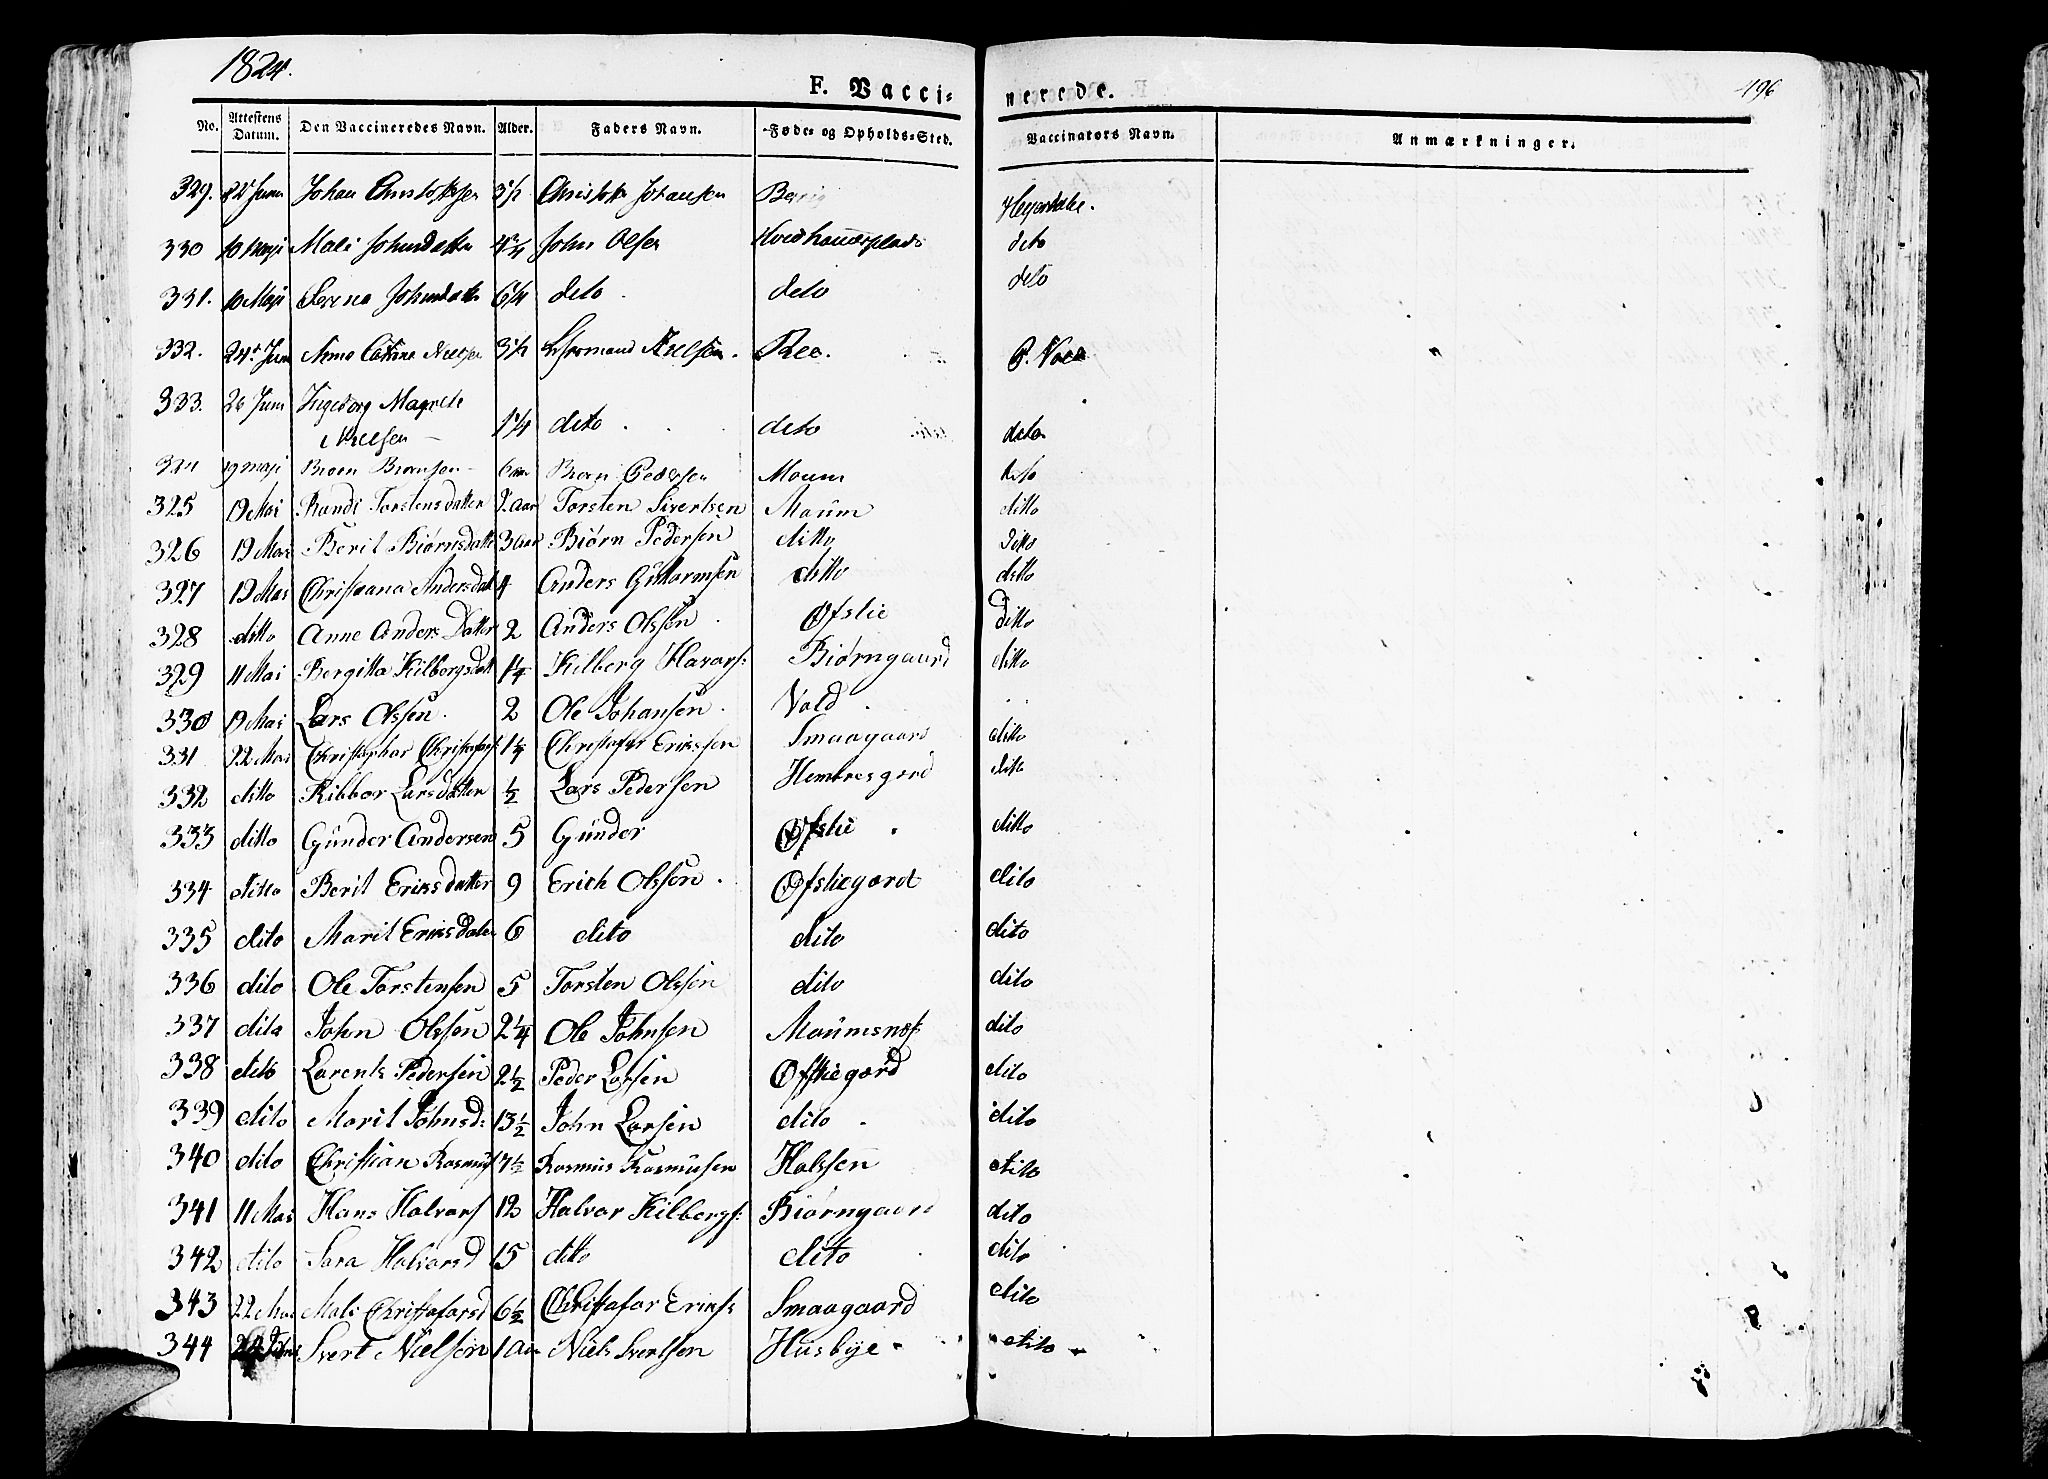 1824.
F. Vacci=
nerede.
496
No. Attestens Datum. Den Vaccineredes Navn. Alder. Faders Navn. Føde- og Opholds-Sted. Vaccinators Navn. Anmærkninger.
329. Juni Johan 3½ Johansen
330 10 Maji Mali Johnsdatter John Olsen dito
331. 10 Maji Johnsdatter 6¼ dito dito dito
332. 24 Juni Anne Nielsen 3½ Nielsen.
333. 26 Juni Ingeborg Magrete
Nielsen 1¼ dito dito dito
324 19 maji Pedersen Moum dito
325 19 Mai Randi Torstensdatter aar Torsten Sivertsen Maüm ditto
326 19 Mai Beril Biørnsdatter 3 aar Biørn Pedersen ditto ditto
327 19 Mai Christiana Andersdat 4 Anders ditto ditto
328 ditto Anne Anders Datter 2 Anders Olssen Øfslie Ditto
329 11 Mai Bergitta Kilbergsdatt 1¼ Kilberg Havars: Biørngaard ditto
330 19 Mai Lars Olssen. 2 Ole Johansen. Vold
331 22 Mai Christophar Christofars 1¼ Christofar Erikssen Smaagaard ditto
332 ditto Ribbor Larsdatter ½ Lars Pedersen ditto
333 ditto Günder Andersen 5 Günder Øfslie ditto
334 ditto Beril Eriksdatter 9 Erich Olssen. Øfsliegard dito
335 dito Maril Eriksdater 6 dito dito dito
336 dito Ole Torstensen 5 Torsten Olssen dito dito
337 dito John Olssen 2¼ Ole Johnsen dito
338 dito Larents Pedersen 2½ Peder Larsen Øfsliegard dito
339 dito Maril Johnsd: 13½ John Larsen dito dito
340 dito Christian Rasmus Rasmus Rasmüsen Halssen dito
341 11 Mai Hans Halvars 12 Halvar Kilbergs: Biørngaard dito
342 dito Sara Halvarsd 15 ditto dito dito
343 22 Mai Mali Christafarsd 6½ Christafar Eriks: Smaagaard dito
344 Svert Nielsen 1 Aar Niels Svertsen Husbye dito